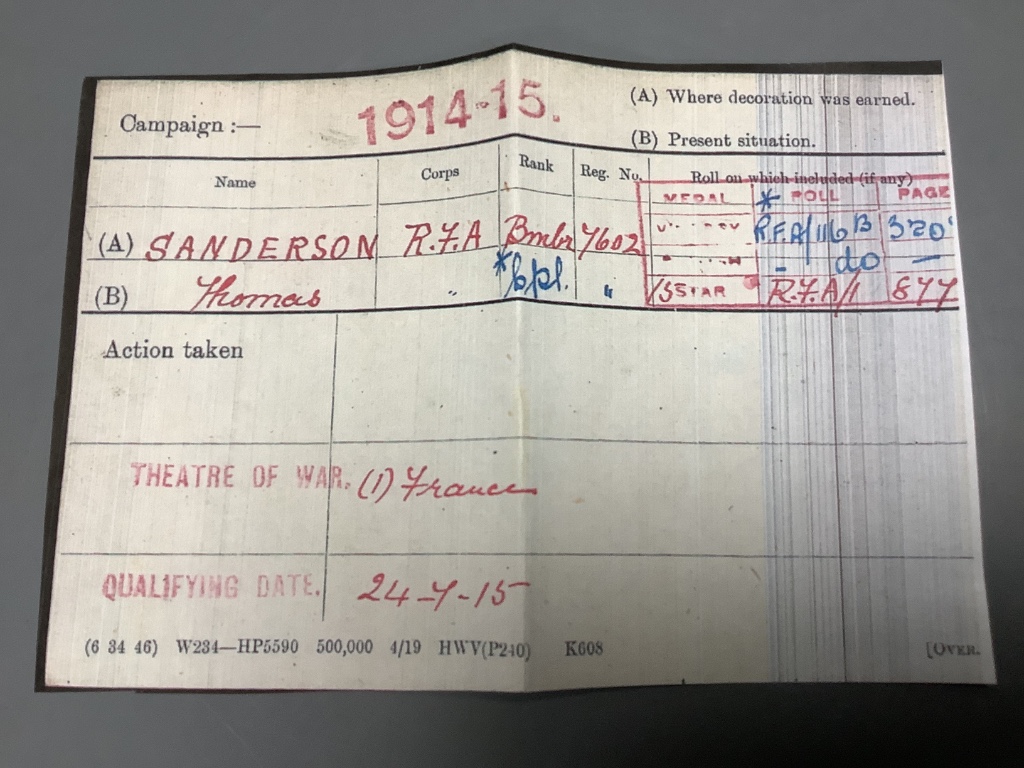 Campaign :— 1914-15. (A) Where decoration was earned.
(B) Present situation.
Name Corps Rank Reg. No. Roll on which included (if any)
MEDAL * ROLL PAGE
(A) SANDERSON R.F.A Bmbr 7602 R.F.A/116B 320
*Cpl. do —
(B) Thomas " " 15 STAR R.F.A/1 877
Action taken
THEATRE OF WAR. (1) France
QUALIFYING DATE. 24-7-15
(6 34 46) W234—HP5590 500,000 4/19 HWV(P240) K608 [OVER.